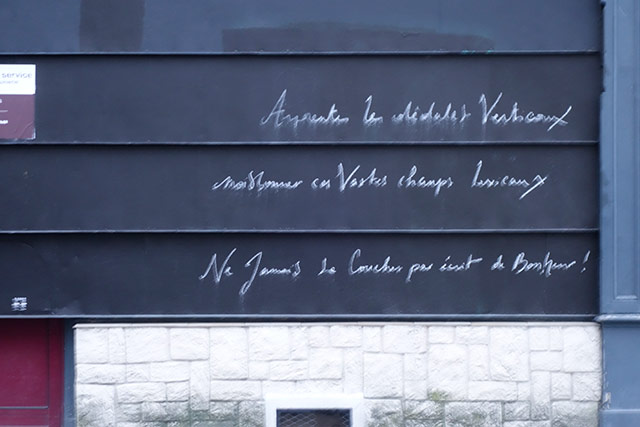 SERVICE
Arpenter les dédales Verticaux
moissonner ces Vastes champs lexicaux
Ne Jamais Se Coucher par écrit de Bonheur !